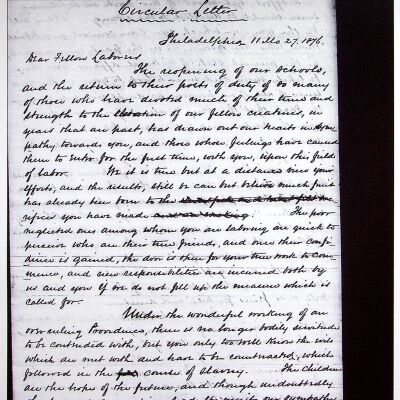 Circular Letter
Philadelphia 11 Mo 27. 1876.
Dear Fellow Laborers
The reopening of our schools,
and the return to their posts of duty of so many
of those who have devoted much of their time and
strength to the elevation of our fellow creatures, in
years that are past, has drawn out our hearts in sym
pathy towards you, and those whose feelings have caused
them to enter for the first time, with you, upon the field
of labor. We it is true but at a distance view your
efforts, and the results, still we can but believe much fruit
has already been born to the
rifices you have made The poor
neglected ones among whom you are laboring are quick to
perceive who are their true friend, and once their confi
dence is gained, the door is open for your true work to com
mence, and new responsibilities are incurred both by
us and you if we do not fill up the measure which is
called for.
Under the wonderful working of an
overruling Providence, there is no longer bodily servitude
to be contended with, but you only too well know the evils
which are met with and have to be counteracted, which
followed in the course of slavery. The children
are the hope of the future, and though undoubtedly